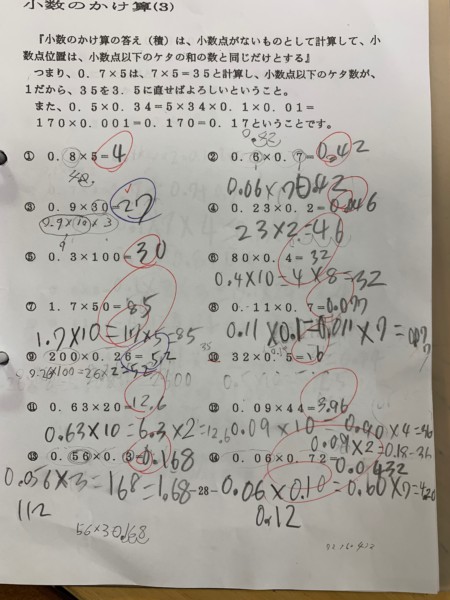 小数のかけ算(3)
『小数のかけ算の答え（積）は、小数点がないものとして計算して、小
数点位置は、小数点以下のケタの和の数と同じだけとする』
つまり、0．7×5は、7×5＝35と計算し、小数点以下のケタ数が、
1だから、35を3．5に直せばよろしいということ。
また、0．5×0．34＝5×34×0．1×0．01＝
170×0．001＝0．170＝0．17ということです。
① 0．8×5＝4
② 0．6×0．7＝0.42
0.06×7
③ 0．9×30＝27
④ 0．23×0．2＝
0.9×10×3
23×2=4.6
9
⑤ 0．3×100＝30
⑥ 80×0．4＝32
0.4×10=4×8=32
⑦ 1．7×50＝85
⑧ 0．11×0．7＝0.077
1.7×10=17×5=85
0.11×0.1=0.011×7=
⑨ 200×0．26＝5.2
⑩ 32×0．5＝16
⑪ 0．63×20＝12.6
⑫ 0．09×44＝3.96
0.63×10=6.3×2=12.6
0.09×10=0.90×4=
0.09×2=0.18
⑬ 0．56×0．3＝0.168
⑭ 0．06×0．72＝0.0432
0.056×3=168=1.68
-28-
0.06×0.10=0.60×7=4.20
112
0.12
56×3